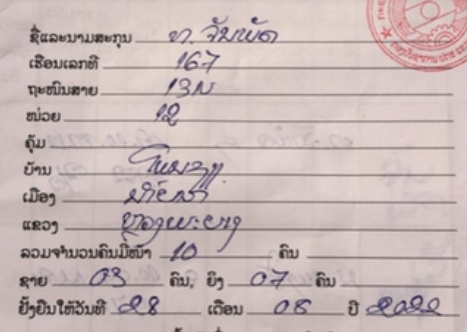 ຊື່ແລະນາມສະກຸນ ທ. ຈັນພັດ
ເຮືອນເລກທີ 167
ຖະໜົນສາຍ 13ນ
ໜ່ວຍ 12
ຄຸ້ມ
ບ້ານ
ເມືອງ
ແຂວງ ຫຼວງພະບາງ
ລວມຈຳນວນຄົນມີໜ້າ 10 ຄົນ
ຊາຍ 03 ຄົນ, ຍິງ 07 ຄົນ
ຢັ້ງຢືນໃຫ້ວັນທີ 28 ເດືອນ 08 ປີ 2022